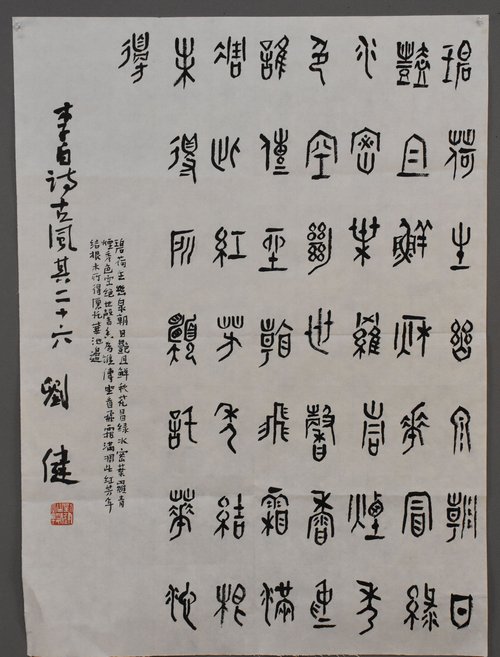 碧荷生幽泉朝日
豔且鮮秋花冒綠
水密葉羅青煙秀
色空絕世馨香為
誰傳坐看飛霜滿
凋此紅芳年結根
未得所願託華池
邊
碧荷生幽泉朝日艷且鮮秋花冒綠水密葉羅青
煙秀色空絕世馨香為誰傳坐看飛霜滿凋此紅芳年
結根未得所願托華池邊
李白詩古風其二十六 劉健